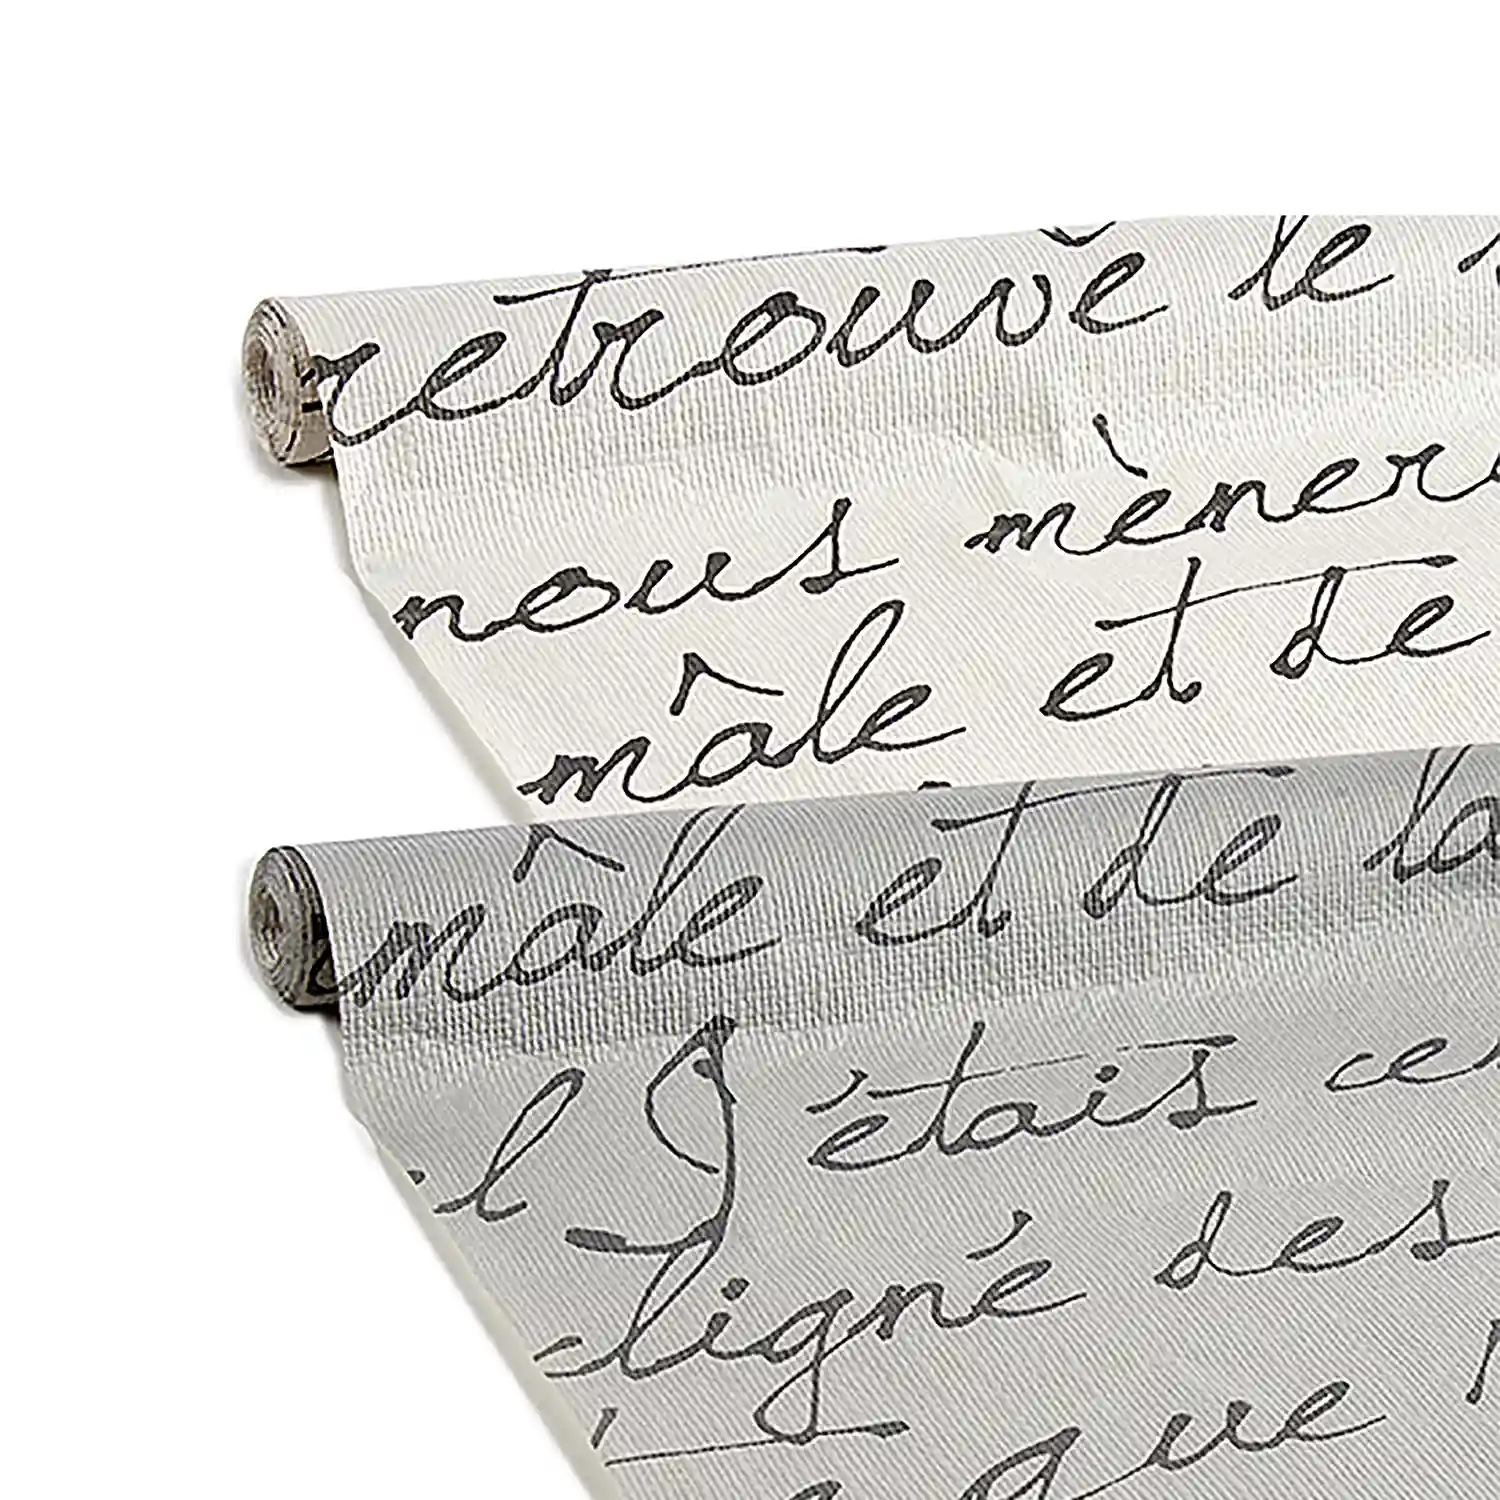 retrouvé le
nous mèner
mâle et de
mâle et de la
l J'étais ce
cligné des
que